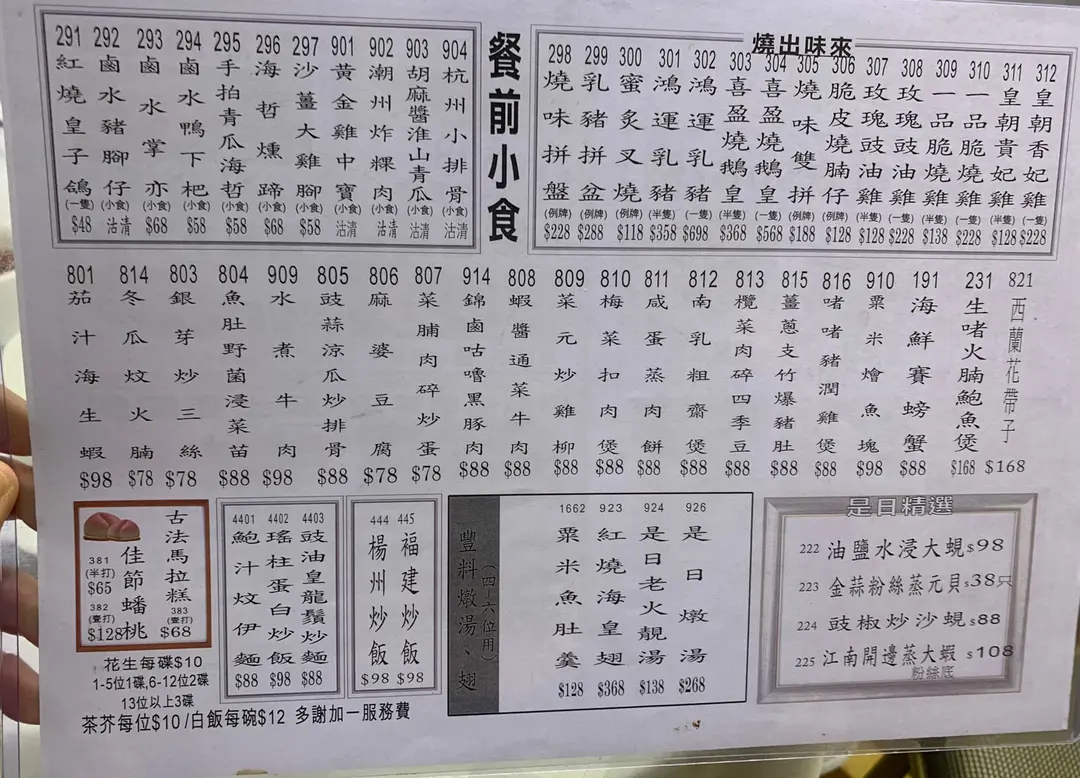 餐前小食
291 紅燒皇子鴿 (一隻) $48
292 鹵水豬腳仔 (小食) 沽清
293 鹵水掌亦 (小食) $68
294 鹵水鴨下杷 (小食) $58
295 手拍青瓜海哲 (小食) $58
296 海哲燻蹄 (小食) $68
297 沙薑大雞腳 (小食) $58
901 黃金雞中寶 (小食) 沽清
902 潮州炸粿肉 (小食) 沽清
903 胡麻醬淮山青瓜 (小食) 沽清
904 杭州小排骨 (小食) 沽清
燒出味來
298 燒味拼盤 (例牌) $228
299 乳豬拼盆 (例牌) $288
300 蜜炙叉燒 (例牌) $118
301 鴻運乳豬 (半隻) $358
302 鴻運乳豬 (一隻) $698
303 喜盈燒鵝皇 (半隻) $368
304 喜盈燒鵝皇 (一隻) $568
305 燒味雙拼 (例牌) $188
306 脆皮燒腩仔 (例牌) $128
307 玫瑰豉油雞 (半隻) $128
308 玫瑰豉油雞 (一隻) $228
309 一品脆燒雞 (半隻) $138
310 一品脆燒雞 (一隻) $228
311 皇朝貴妃雞 (半隻) $128
312 皇朝香妃雞 (一隻) $228
801 茄汁海生蝦 $98
814 冬瓜炆火腩 $78
803 銀芽炒三絲 $78
804 魚肚野菌浸菜苗 $88
909 水煮牛肉 $98
805 豉蒜涼瓜炒排骨 $88
806 麻婆豆腐 $78
807 菜脯肉碎炒蛋 $78
914 錦鹵咕嚕黑豚肉 $88
808 蝦醬通菜牛肉 $88
809 菜元炒雞柳 $88
810 梅菜扣肉煲 $88
811 咸蛋蒸肉餅 $88
812 南乳粗齋煲 $88
813 欖菜肉碎四季豆 $88
815 薑蔥支竹爆豬肚 $88
816 啫啫豬潤雞煲 $88
910 粟米燴魚塊 $98
191 海鮮賽螃蟹 $88
231 生啫火腩鮑魚煲 $168
821 西蘭花帶子 $168
古法馬拉糕
383 (壹打) $68
佳節蟠桃
381 (半打) $65
382 (壹打) $128
花生每碟$10
1-5位1碟,6-12位2碟
13位以上3碟
茶芥每位$10 /白飯每碗$12 多謝加一服務費
4401 鮑汁炆伊麵 $88
4402 瑤柱蛋白炒飯 $98
4403 豉油皇龍鬚炒麵 $88
444 楊州炒飯 $98
445 福建炒飯 $98
豐料燉湯、翅 (四-六位用)
1662 粟米魚肚羹 $128
923 紅燒海皇翅 $368
924 是日老火靚湯 $138
926 是日燉湯 $268
是日精選
222 油鹽水浸大蜆 $98
223 金蒜粉絲蒸元貝 $38只
224 豉椒炒沙蜆 $88
225 江南開邊蒸大蝦 $108
粉絲底